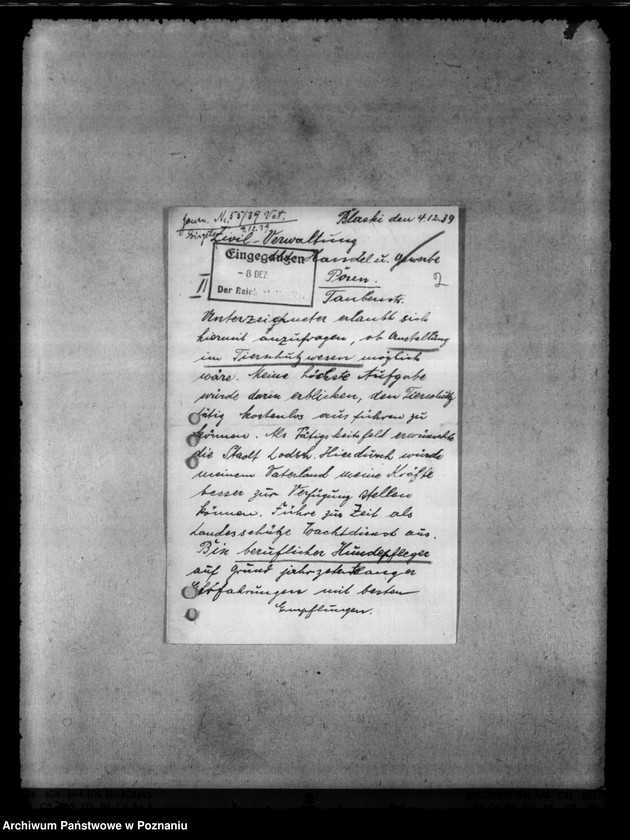 Journ. Nr. 55/39 Vet.
Błaski den 4.12.39
9.12.39
Zivil-Verwaltung
Handel u. Gewerbe
Eingegangen
- 8 DEZ
Der Reich
II
Posen.
2
Taubenstr.
Unterzeichneter erlaubt sich
hiermit anzufragen, ob Anstellung
im Tierschutzwesen möglich
wäre. Meine höchste Aufgabe
würde darin erblicken, den Tierschutz
tätig kostenlos ausführen zu
können. Als Tätigkeitsfeld erwünschte
die Stadt Lodsch. Hierdurch würde
meinem Vaterland meine Kräfte
besser zur Verfügung stellen
können. Führe zur Zeit als
Landesschütze Wachtdienst aus.
Bin beruflicher Hundepfleger
auf Grund jahrzehntelanger
Erfahrungen mit besten
Empflungen.
Archiwum Państwowe w Poznaniu